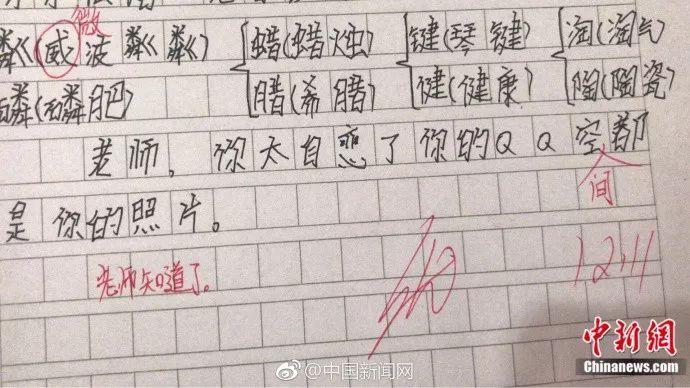 微
粼(威波粼粼) 蜡(蜡烛) 键(琴键) 淘(淘气)
磷(磷肥) 腊(希腊) 健(健康) 陶(陶瓷)
老师,你太自恋了你的QQ空都
间
是你的照片。
老师知道了。
12.11
@中国新闻网
中新网
Chinanews.com